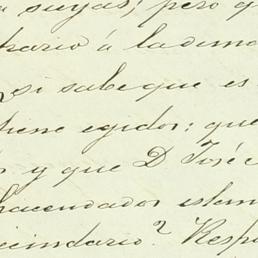 suyas; pero q
trario á la dema
si sabe que es
tiene egidos: que
y que D José
hacendados
ecindario? Resp